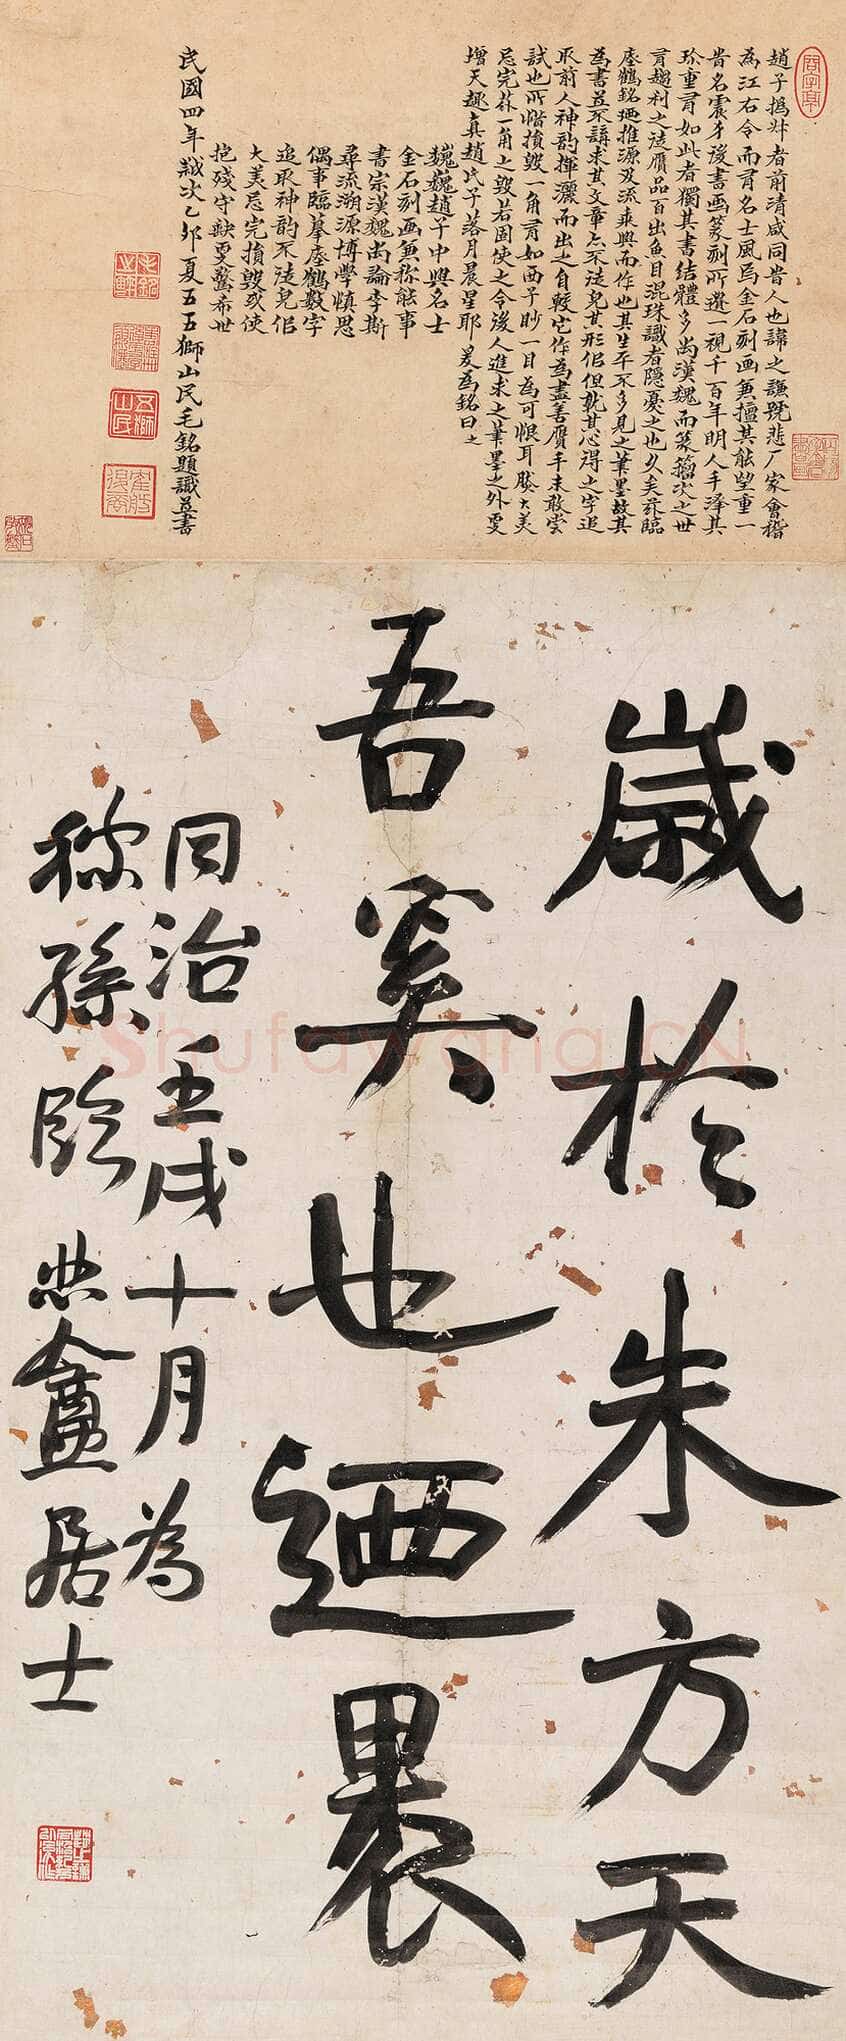 趙子撝叔者前清咸同貴人也諱之謙號悲厂家會稽
為江右令而有名士風焉金石刻画無擅其能望重一
旹名震身後書画篆刻所遺一視千百年明人手澤其
珍重有如此者獨其書結體多尚漢魏而篆籀次之世
有趨利之徒贋品百出魚目混珠識者隱憂之也久矣茲臨
瘞鶴銘廼推源及流乘興而作也其生平不多見之筆墨故其
為書並不講求其文章亦不徒皃其形侣但就其心得之字追
取前人神韵揮灑而出之自較它作為盡善贋手未敢尝
試也所惜損毀一角有如西子眇一目為可恨耳然大美
忌完茲一角之毀若固使之令後人進求之筆墨之外更
增天趣真趙氏子落月晨星耶 爰為銘曰之
巍巍趙子中興名士
金石刻画無称能事
書宗漢魏尚論李斯
尋流溯源博學慎思
偶事臨摹瘞鶴數字
追取神韵不徒皃侣
大美忌完損毀或使
抱殘守缺更驚希世
民國四年歲次乙卯夏五五獅山民毛銘題識並書
五獅
山民
歲於朱方天
吾奚也廼裹
同治壬戌十月為
稼孫臨 悲盦居士
Shufawang.CN